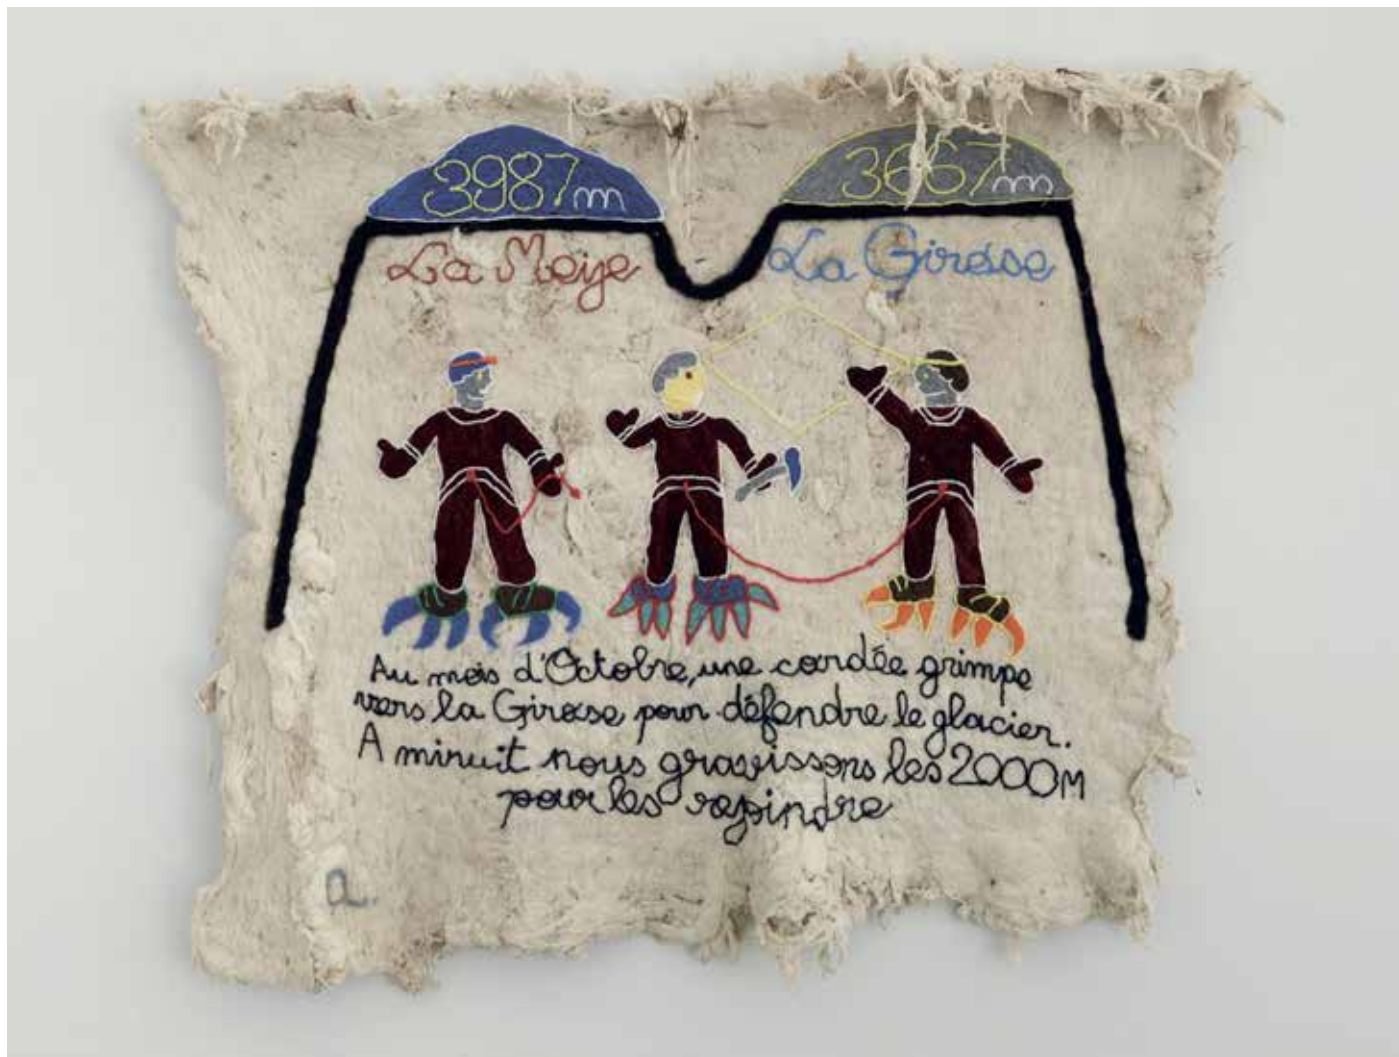 3987m
3667m
La Meije
La Girose
Au mois d'Octobre, une cordée grimpe
vers la Girose pour défendre le glacier.
A minuit nous gravissons les 2000M
pour les rejoindre
a.